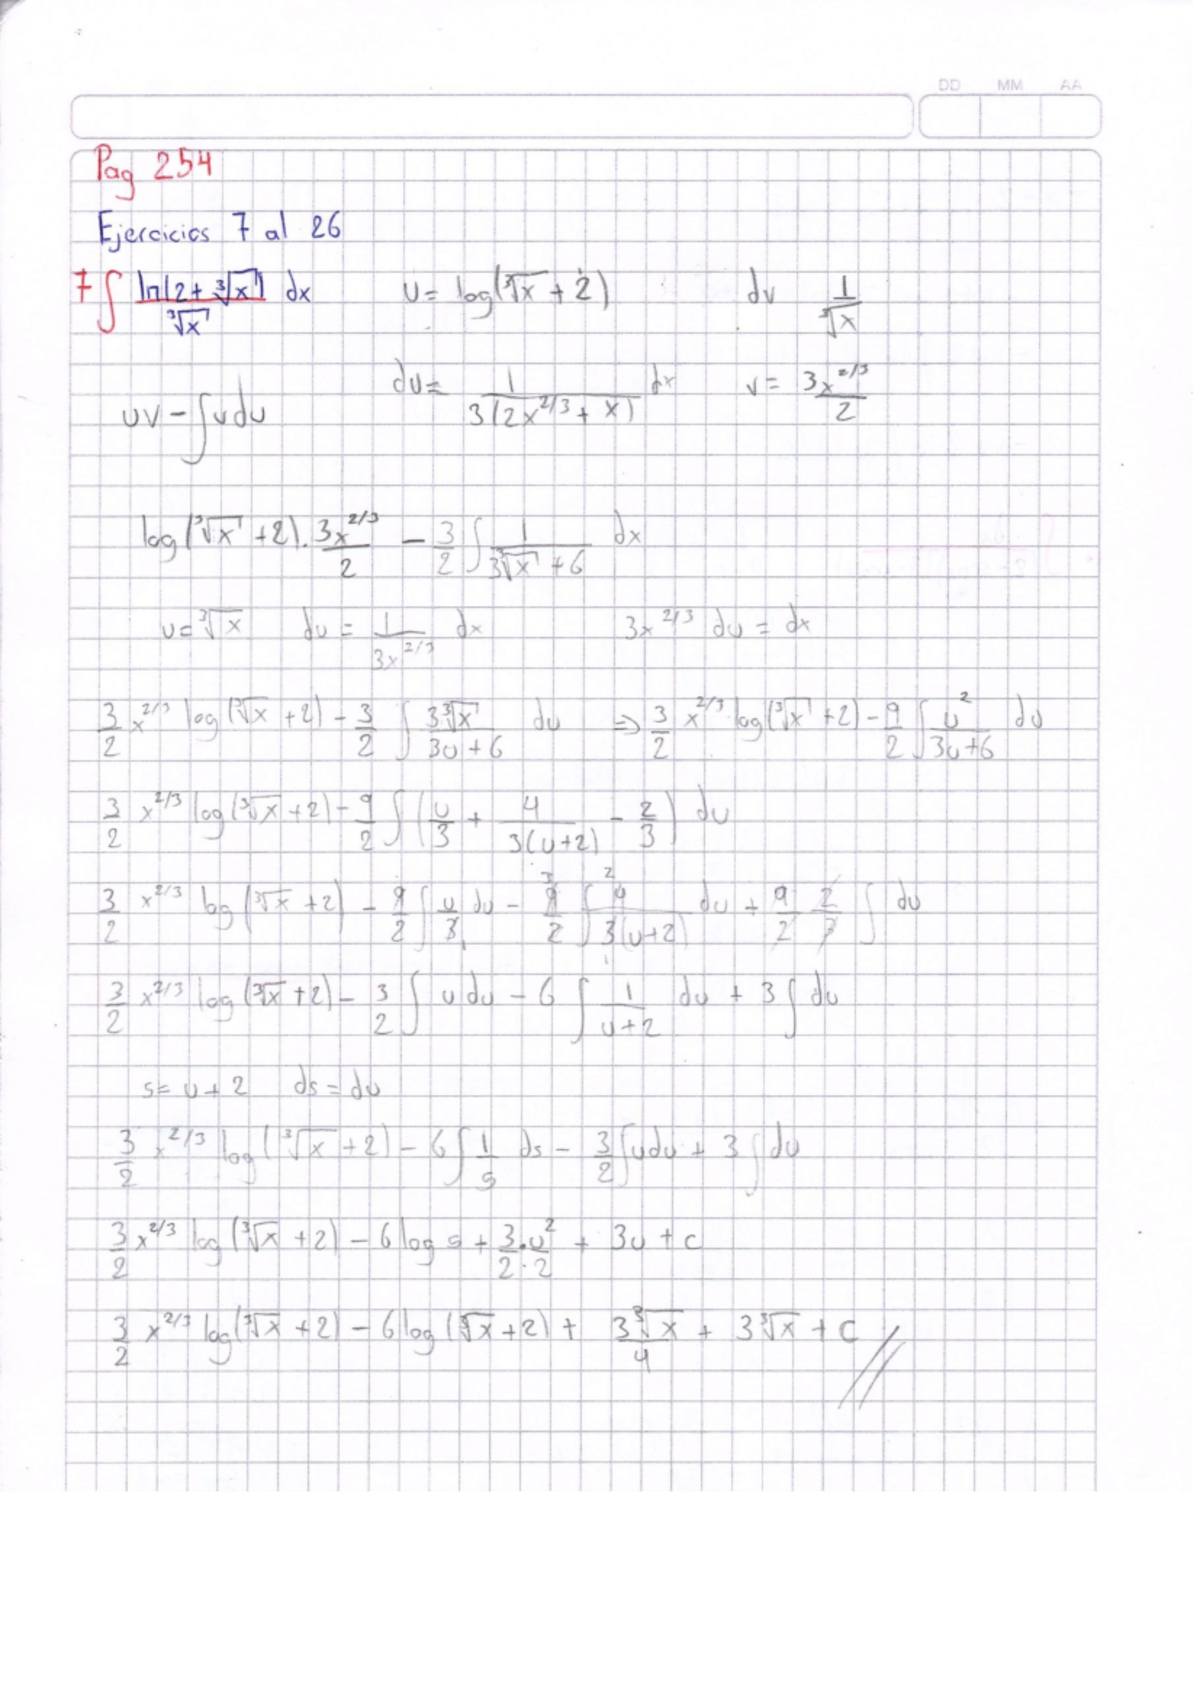 DD MM AA
Pag 254
Ejercicios 7 al 26
7 ∫ ln(2+∛x)/∛x dx    u= log(∛x + 2)    dv 1/∛x
uv - ∫vdu    du= 1/(3(2x^2/3 + x)) dx    v= 3x^2/3/2
log(∛x +2).3x^2/3/2 - 3/2 ∫ 1/(3∛x +6) dx
u=∛x    du = 1/(3x^2/3) dx    3x^2/3 du = dx
3/2 x^2/3 log(∛x +2) - 3/2 ∫ 3∛x/(3u+6) du ⇒ 3/2 x^2/3 log(∛x +2) - 9/2 ∫ u^2/(3u+6) du
3/2 x^2/3 log(∛x +2) - 9/2 ∫ (u/3 + 4/(3(u+2)) - 2/3) du
3/2 x^2/3 log (∛x +2) - 9/2 ∫ u/3 du - 9/2 ∫ 4/(3(u+2)) du + 9/2 2/3 ∫ du
3/2 x^2/3 log (∛x +2) - 3/2 ∫ u du - 6 ∫ 1/(u+2) du + 3 ∫ du
s= u+2    ds = du
3/2 x^2/3 log(∛x +2) - 6 ∫ 1/s ds - 3/2 ∫udu + 3 ∫du
3/2 x^2/3 log(∛x +2) - 6 log s + 3/2 . u^2/2 + 3u + c
3/2 x^2/3 log(∛x +2) - 6 log (∛x +2) + 3∛x/4 + 3∛x + c //